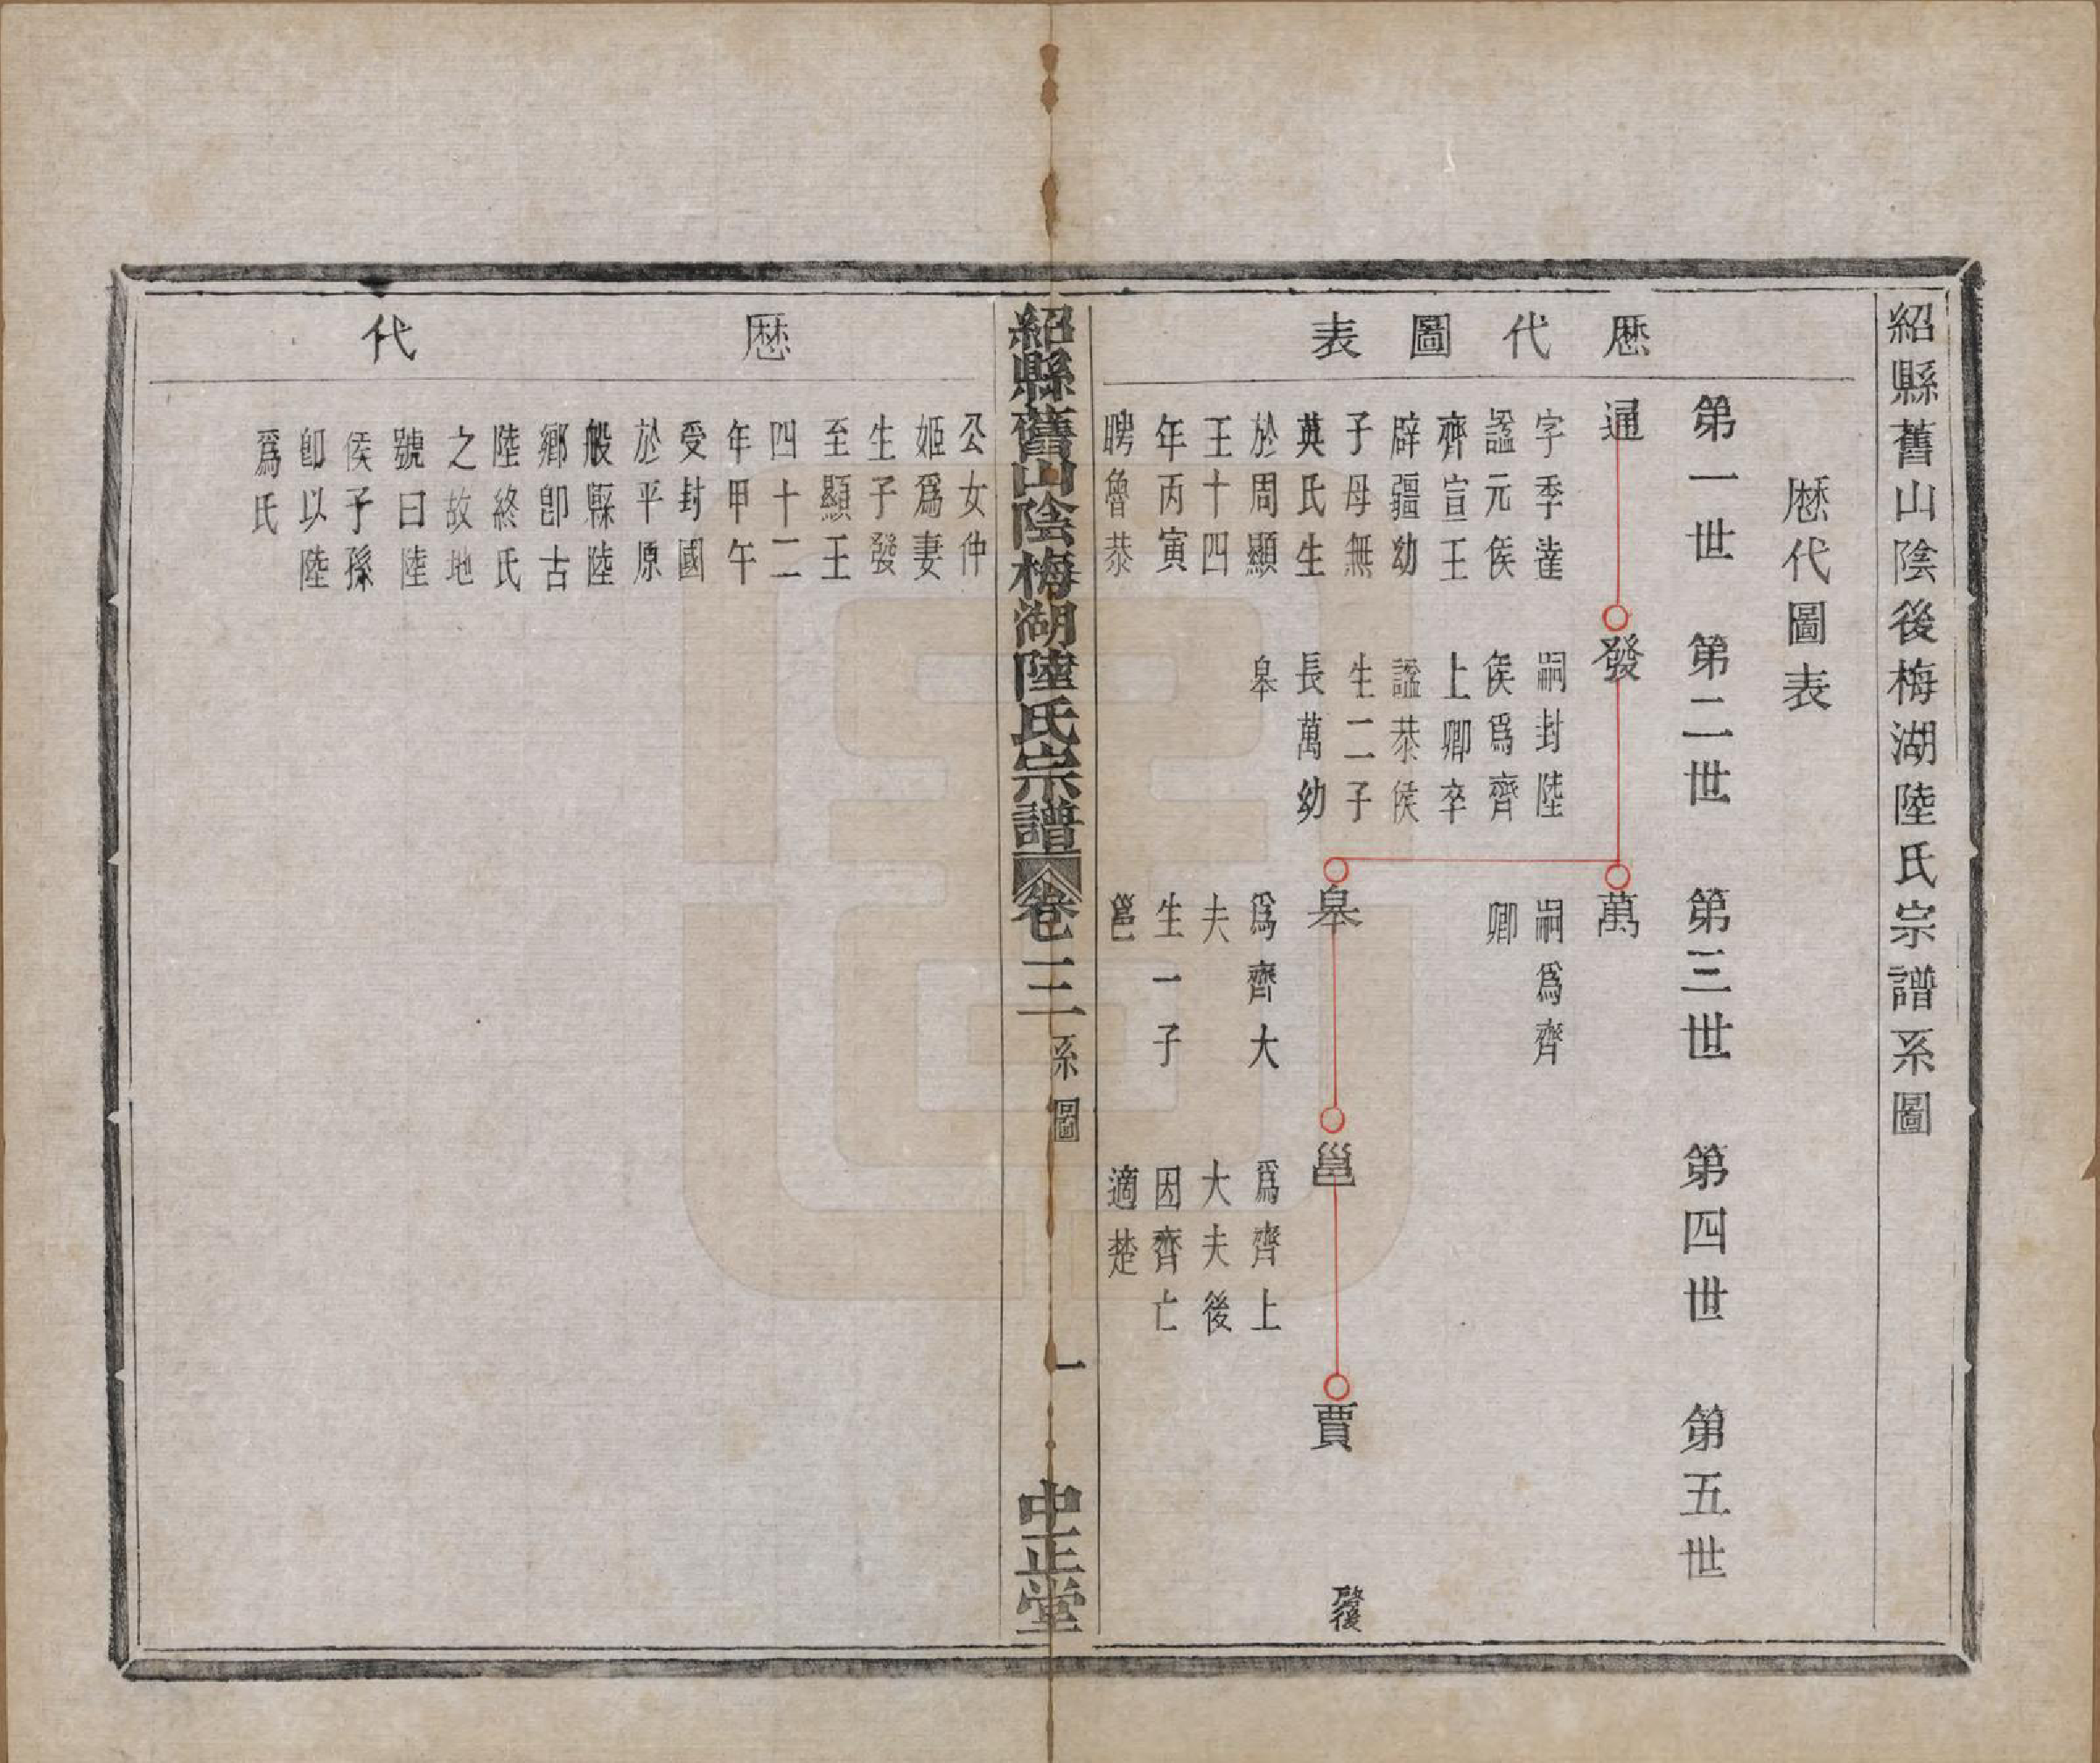 紹縣舊山陰後梅湖陸氏宗譜系圖
歴代圖表
歴代圖表
第一世
第二世
第三世
第四世
第五世
通
字季達
諡元侯
齊宣王
辟疆幼
子母無
英氏生
於周顯
王十四
年丙寅
聘魯恭
公女仲
姬爲妻
生子發
至顯王
四十二
年甲午
受封國
於平原
般縣陸
鄉卽古
陸終氏
之故地
號曰陸
侯子孫
卽以陸
爲氏
發
嗣封陸
侯爲齊
上卿卒
諡恭侯
生二子
長萬幼
皋
萬
嗣爲齊
卿
皋
爲齊大
夫
生一子
邕
邕
爲齊上
大夫後
因齊亡
適楚
賈
啟後
紹縣舊山陰梅湖陸氏宗譜
卷三 系圖
一
中正堂
歴 代